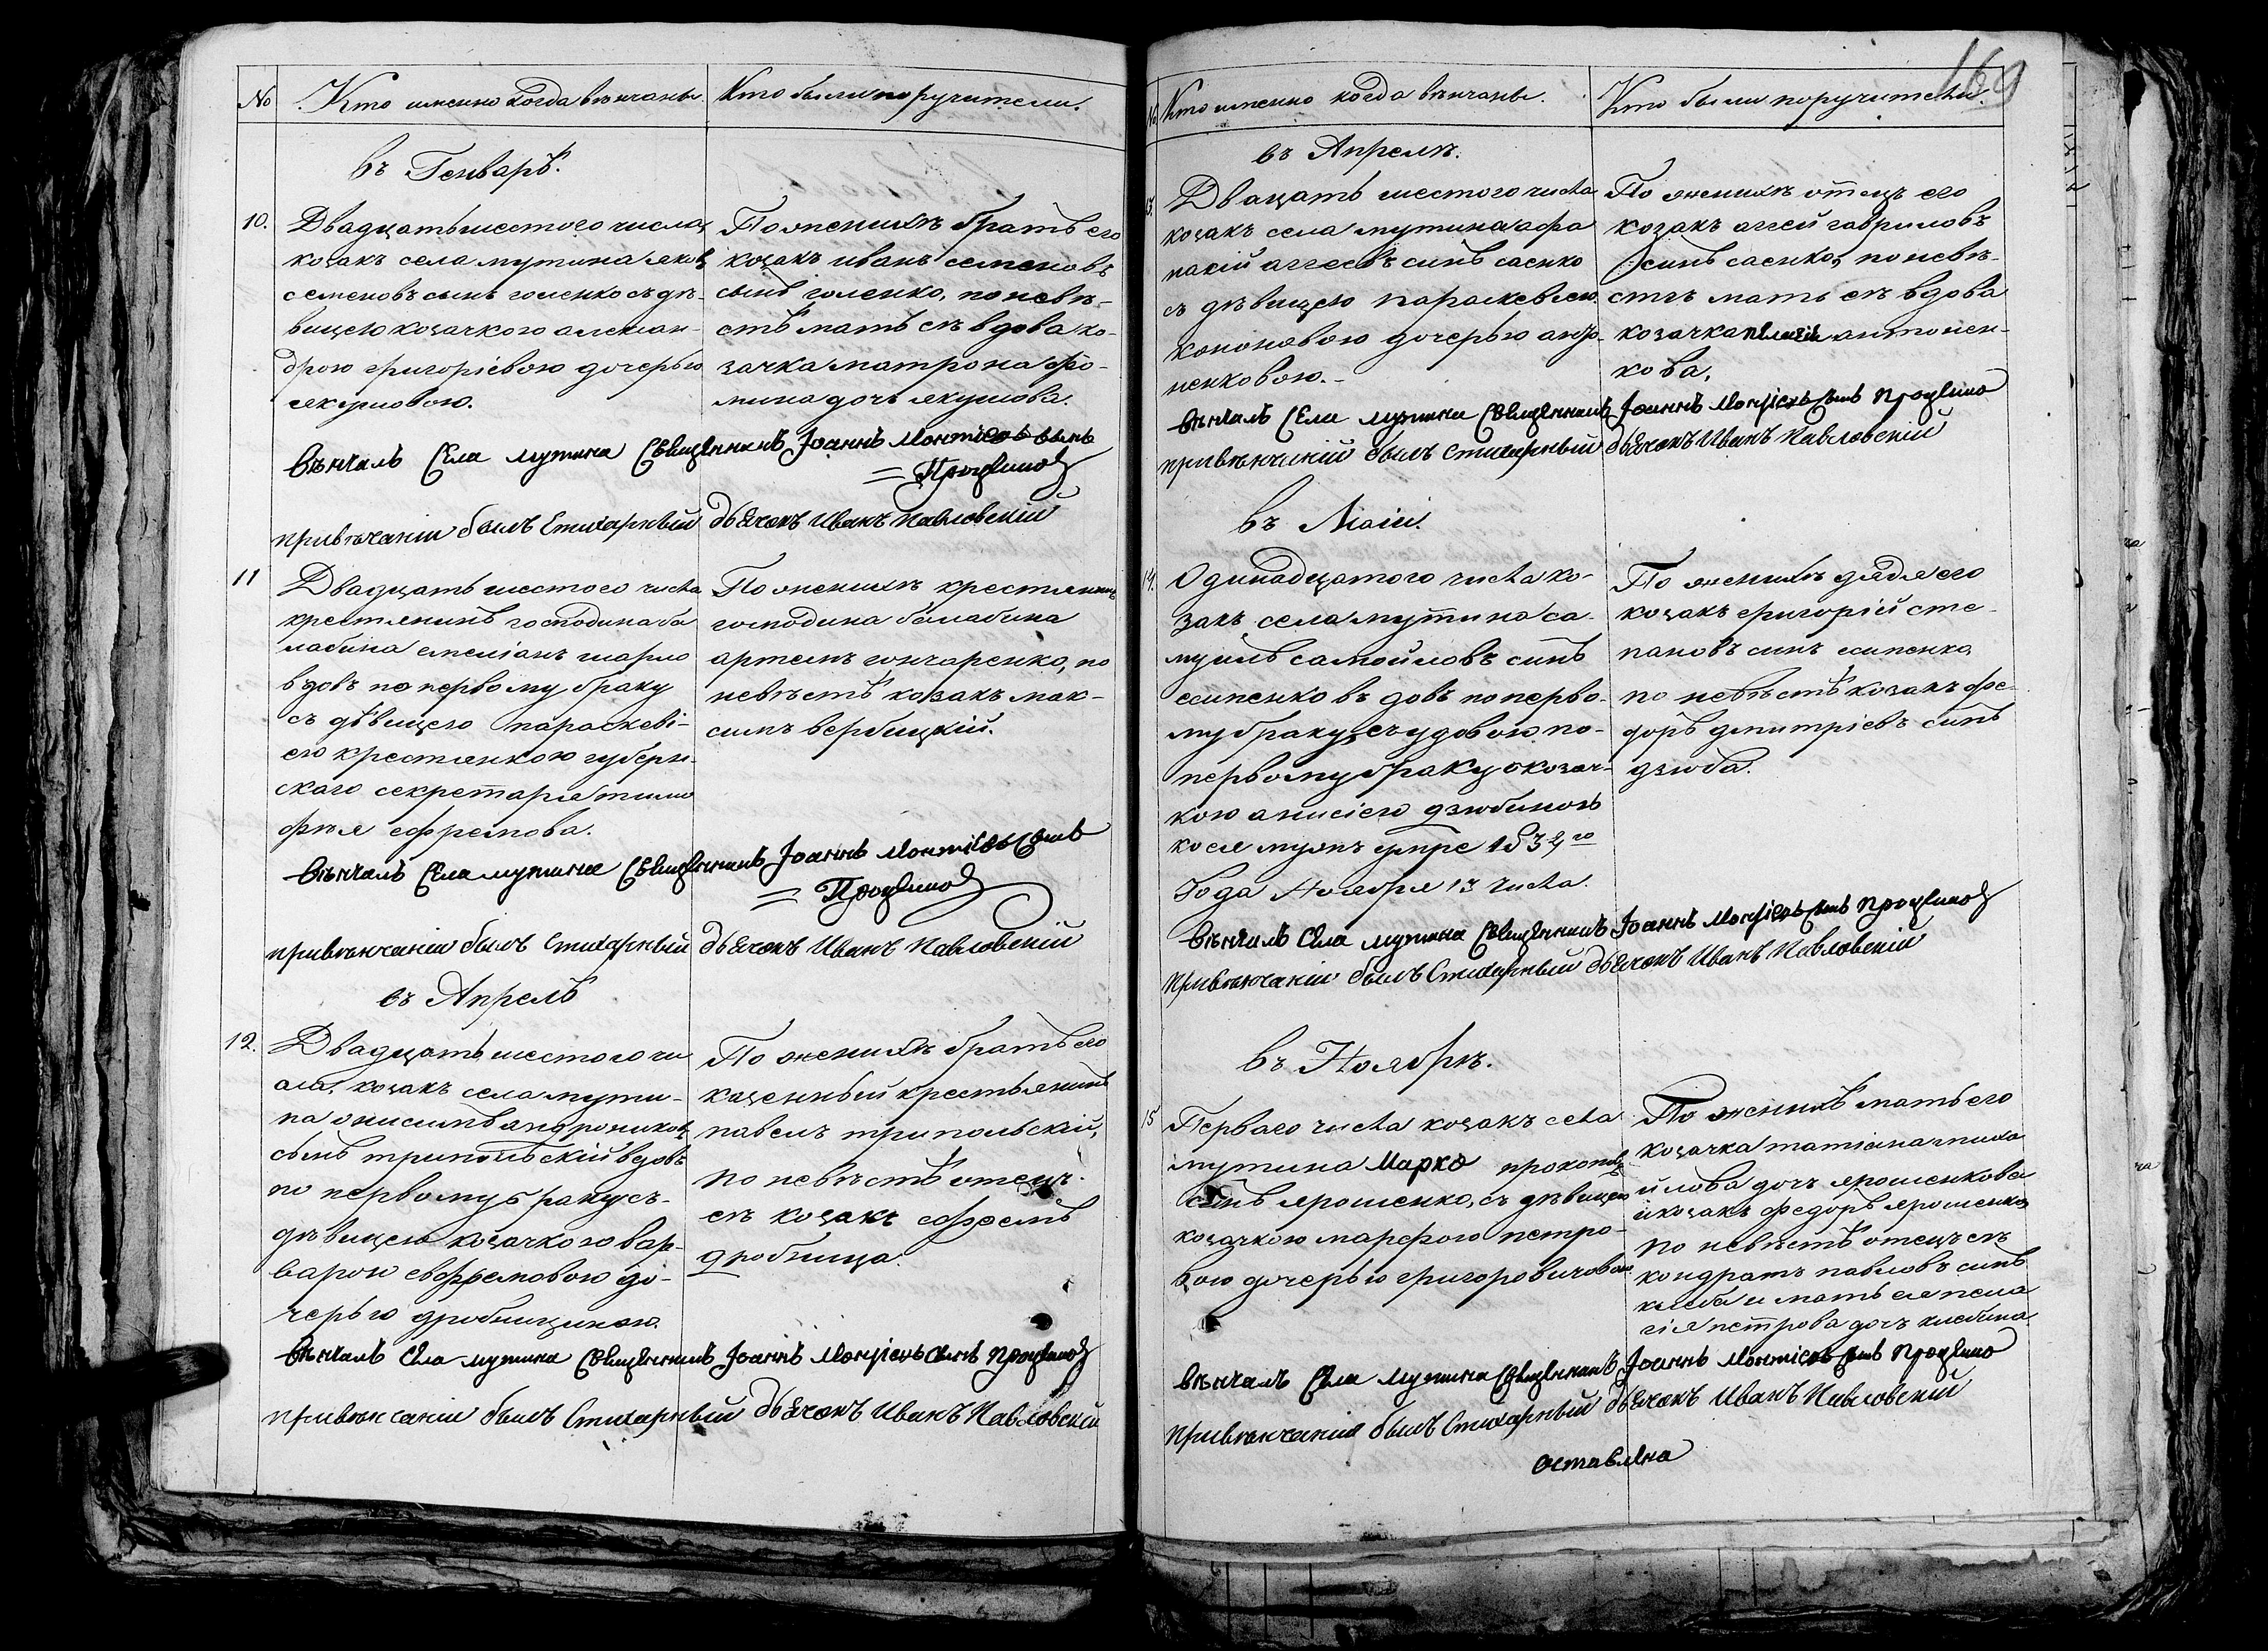 № Кто именно когда венчаны. Кто были поручители.
въ Генварѣ.
10. Двадцать шестого числа
козакъ села мутина яковъ
семеновъ сынъ голенко съ дѣ-
вицею козачкою алексан-
дрою григоріевою дочерью
якушовою.
По женихѣ братъ его
козакъ иванъ семеновъ
сынъ голенко, по невѣ-
стѣ мать еѣ вдова ко-
зачка матрона фо-
мина дочь якушова.
Вѣнчалъ Села мутина Священникъ Іоаннъ
сынъ
При вѣнчаніи былъ Стихарный дьячокъ Иванъ Павловскій
11 Двадцать шестого числа
крестянинъ господина ба
лабина емеліанъ шарло
вдовъ по первому браку
съ дѣвицею параскеві-
ею крестянкою губерн-
скаго секретаря тимо
фѣя ефремова.
По женихѣ крестянинъ
господина балабина
артемъ гончаренко, по
невѣстѣ козакъ мак-
симъ вербицкій.
Вѣнчалъ Села мутина Священникъ Іоаннъ сынъ
При вѣнчаніи былъ Стихарный дьячокъ Иванъ Павловскій
въ Апрелѣ
12. Двадцать шестого чи
сла, козакъ села мути-
на онисимъ андрониковъ
сынъ трипольскій вдовъ
по первому браку съ
дѣвицею козачкою вар-
варою евфремовою до-
черью дробнициною.
По женихѣ братъ его
казенный крестьянинъ
павелъ трипольскій,
по невѣстѣ отецъ
еѣ козакъ ефремъ
дробница.
Вѣнчалъ Села мутина Священникъ Іоаннъ сынъ
При вѣнчаніи былъ Стихарный дьячокъ Иванъ Павловскій
169
№ Кто именно когда вѣнчаны. Кто были поручители.
въ Апрелѣ.
13. Двацать шестого числа
козакъ села мутина афа
насій аггеевъ синъ саенко
съ дѣвицею параскевіею
кононовою дочерью анто-
ненковою.-
По женихѣ отецъ его
козакъ аггей гавриловъ
синъ саенко, по невѣ-
стѣ мать еѣ вдова
козачка антонен-
кова.
Вѣнчалъ Села мутина Священникъ Іоаннъ сынъ
При вѣнчаніи былъ Стихарный дьячокъ Иванъ Павловскій
въ Маіи.
14. Одинадцатого числа ко-
закъ села мутина са-
муилъ самойловъ синъ
есипенко вдовъ по перво-
му браку, съ удовою по-
первому браку козач-
кою анисіею дзюбиною
коея мужъ умре 1834го
Года Ноября 13 числа.
По женихѣ дядя его
козакъ григорій сте-
пановъ синъ есипенко
по невѣстѣ козакъ фе-
доръ дмитріевъ синъ
дзюба.
Вѣнчалъ Села мутина Священникъ Іоаннъ сынъ
При вѣнчаніи былъ Стихарный дьячокъ Иванъ Павловскій
въ Ноябрѣ.
15 Перваго числа козакъ села
мутина Марко прокоповъ
синъ ярошенко, съ дѣвицею
козачкою марфою петро-
вою дочерью григоровичовою
По женихѣ мать его
козачка татіана миха
йлова дочь ярошенкова
и козакъ федоръ ярошенко
по невѣстѣ отецъ еѣ
кондратъ павловъ синъ
хлеба и мать ея пела
гія петрова дочь хлебина
Вѣнчалъ Села мутина Священникъ Іоаннъ сынъ
При вѣнчаніи былъ Стихарный дьячокъ Иванъ Павловскій
оставлена